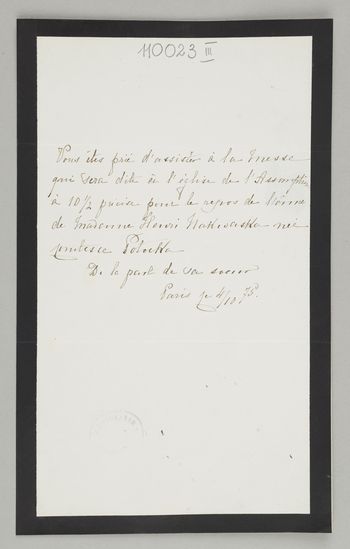 110023 III
Vous êtes prié d'assister à la messe
qui sera dite à l'église de l'Assomption
à 10 ½ précis pour le repos de l'âme
de Madame Henri Nakwaska née
Potocka
De la part de sa soeur
Paris le 4/10 75.